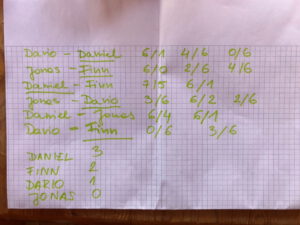 Dario - Daniel 6/1 4/6 0/6
Jonas - Finn 6/2 2/6 4/6
Daniel - Finn 7/5 6/1
Jonas - Dario 3/6 6/2 2/6
Daniel - Jonas 6/4 6/1
Dario - Finn 0/6 3/6
DANIEL 3
FINN 2
DARIO 1
JONAS 0